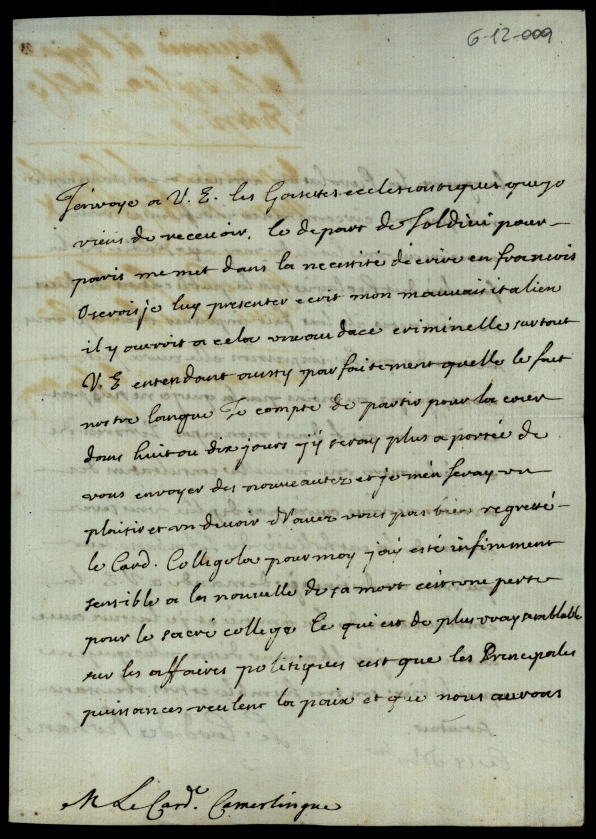 6-12-009
J'envoye a V. E. les Gasettes ecclesiastiques que je
viens de recevoir, le depart de Soldini pour
paris me met dans la necessité décrire en francois
Oserois je luy presenter ecrit mon mauvais italien
il y auroit a cela une audace criminelle surtout
V. E entendant aussy parfaitement quelle le fait
nostre langue Je compte de partir pour la cour
dans huit ou dix jours j'y seray plus a portée de
vous envoyer des nouveautez et je m'en feray un
plaisir et un devoir N'avez vous pas bien regretté
le Card. Colligola pour moy j'ay esté infiniment
sensible a la nouvelle de sa mort c'est une perte
pour le sacré college Ce qui est de plus vraysemblable
sur les affaires politiques c'est que les Principales
puissances veulent la paix et que nous aurons
M Le Card.<sup>le</sup> Camerlingue